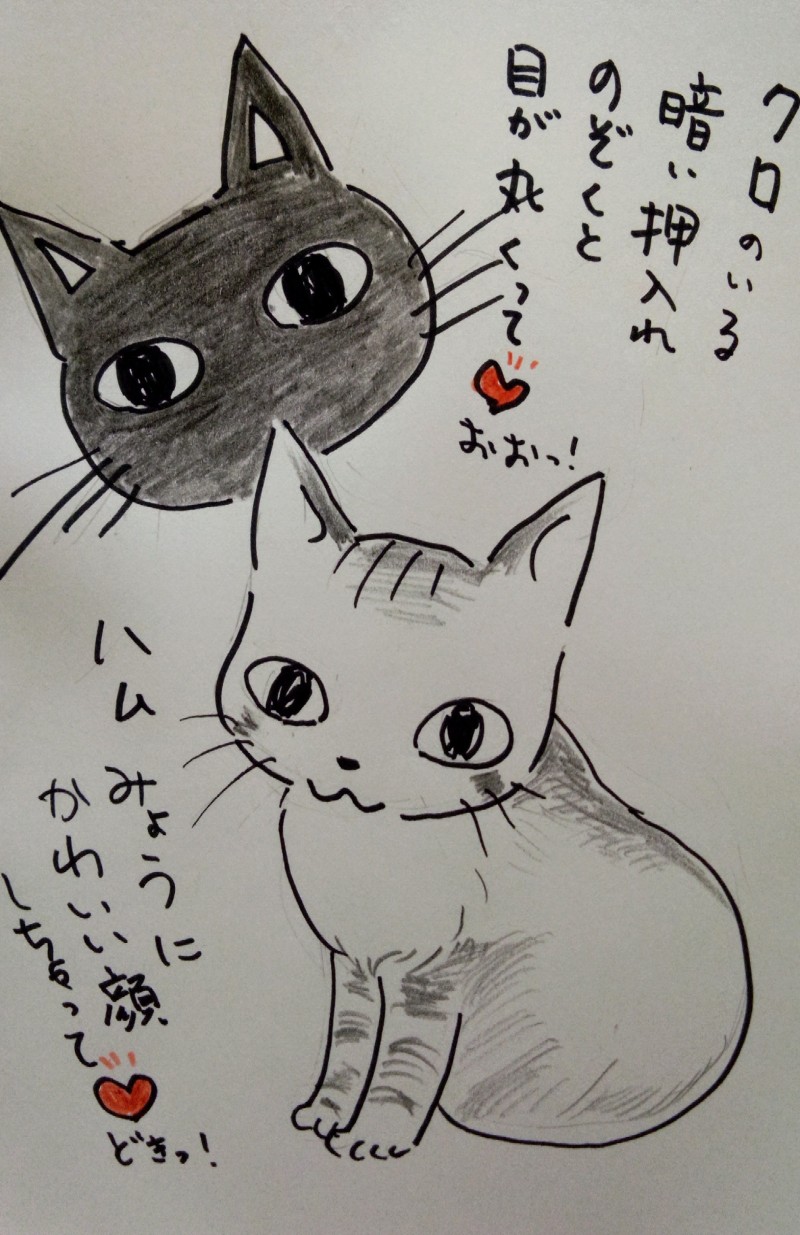 クロのいる
暗い押入れ
のぞくと
目が丸くって
おおっ!
ハム
みょうに
かわいい顔
しちゃって
どきっ!